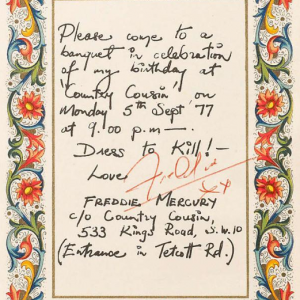 Please come to a
banquet in celebration
of my birthday at
'Country Cousin' on
Monday 5th Sept '77
at 9.00 p.m—.
Dress to Kill!—
Love
FREDDIE MERCURY
c/o Country Cousin,
533 Kings Road, S.W.10
(Entrance in Tetcott Rd.)